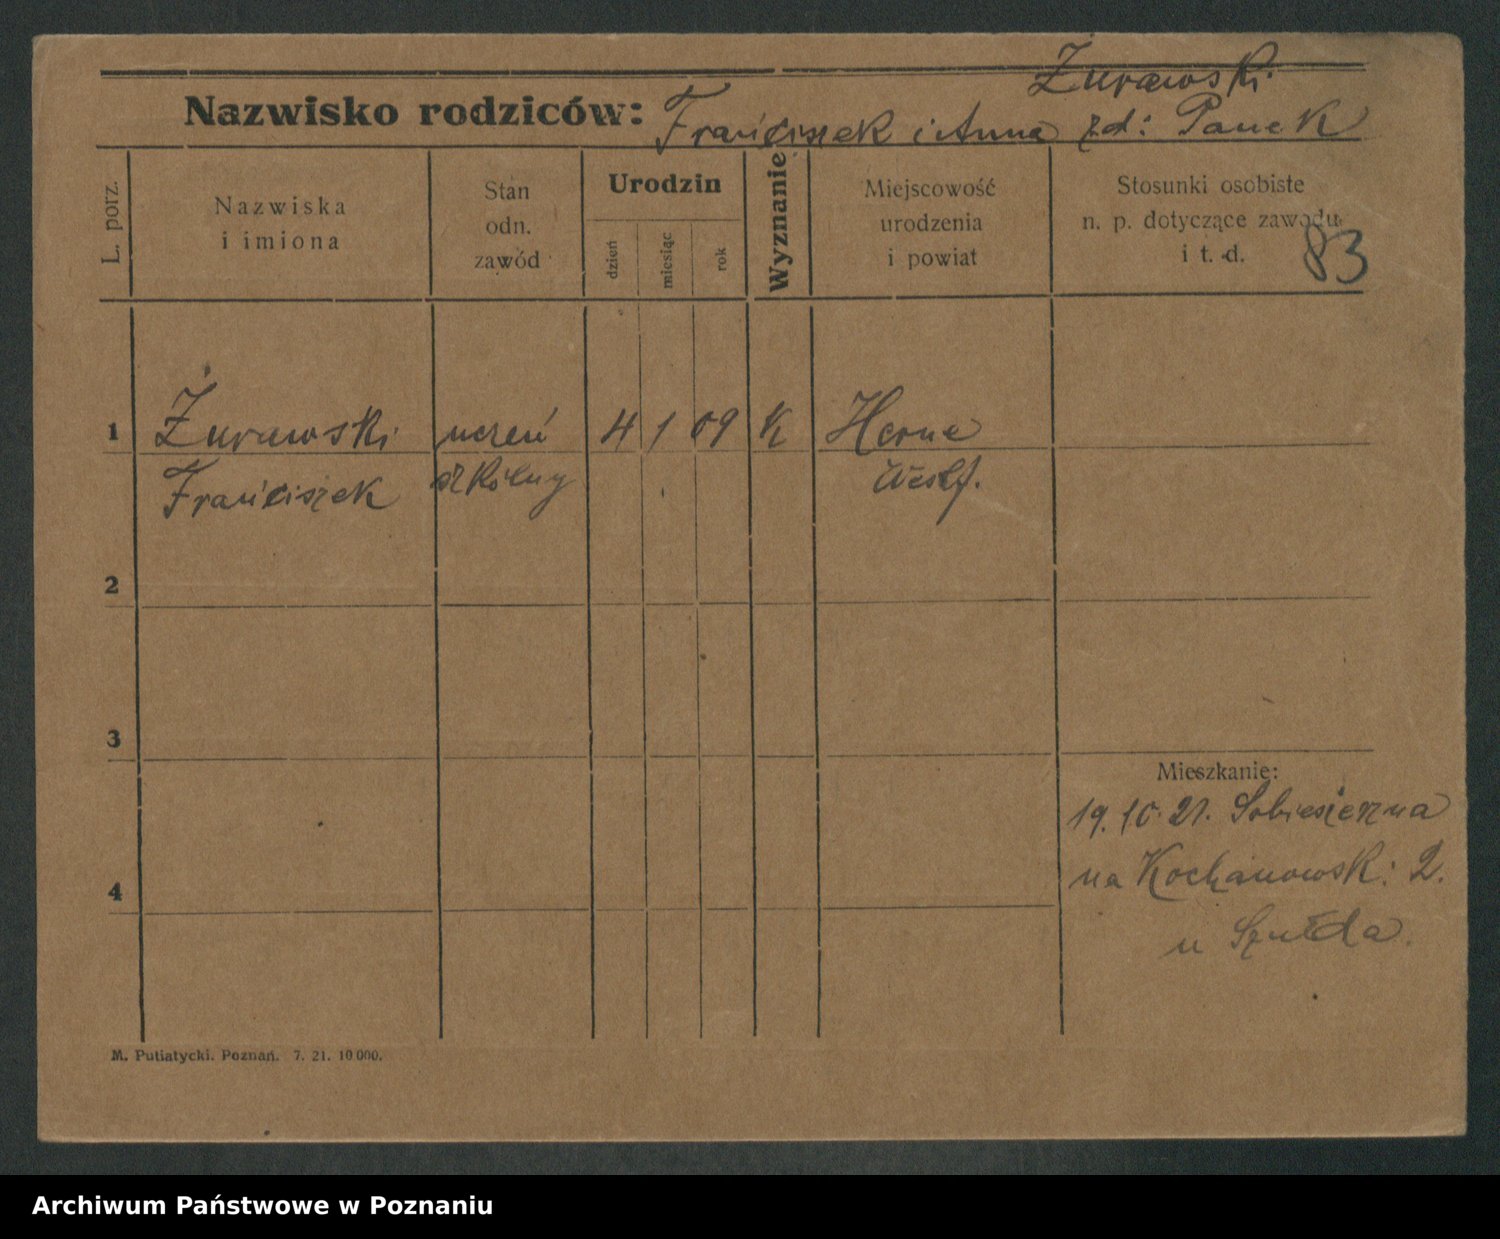 Żurawski
Nazwisko rodziców: Franciszek i Anna zd: Panek
L. porz.
Nazwiska
i imiona
Stan
odn.
zawód
Urodzin
dzień
miesiąc
rok
Wyznanie
Miejscowość
urodzenia
i powiat
Stosunki osobiste
n. p. dotyczące zawodu
i t. d.
83
1 Żurawski uczeń 4 1 09 K Herne
Franciszek szkólny Westf.
2
3
Mieszkanie:
19.10.21. Sobiesierzna
na Kochanowsk: 2.
4
u Szułda.
M. Putiatycki. Poznań. 7. 21. 10 000.
Archiwum Państwowe w Poznaniu